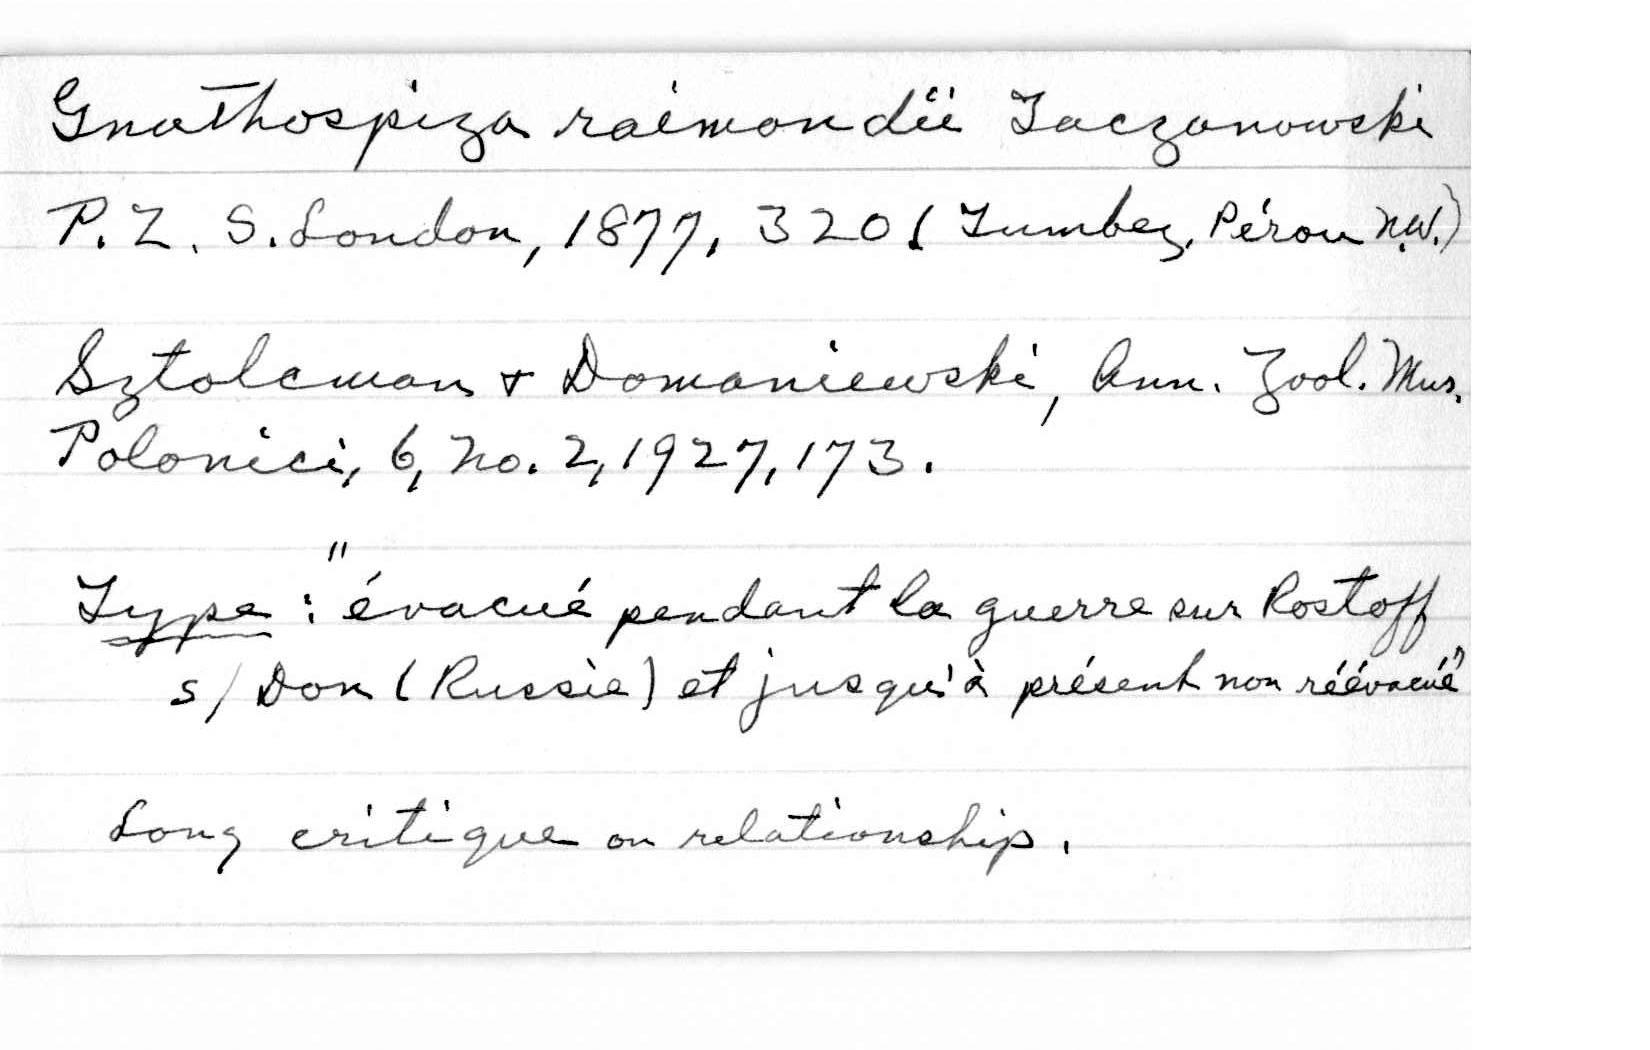 Gnathospiza raimondii Taczanowski
P. Z. S. London, 1877, 320 (Tumbez, Pérou N.W.)
Sztolcman & Domaniewski, Ann. Zool. Mus.
Polonici, 6, No. 2, 1927, 173.
Type : "évacué pendant la guerre sur Rostoff
s/ Don (Russie) et jusqu'à présent non réévacué"
Long critique on relationship.